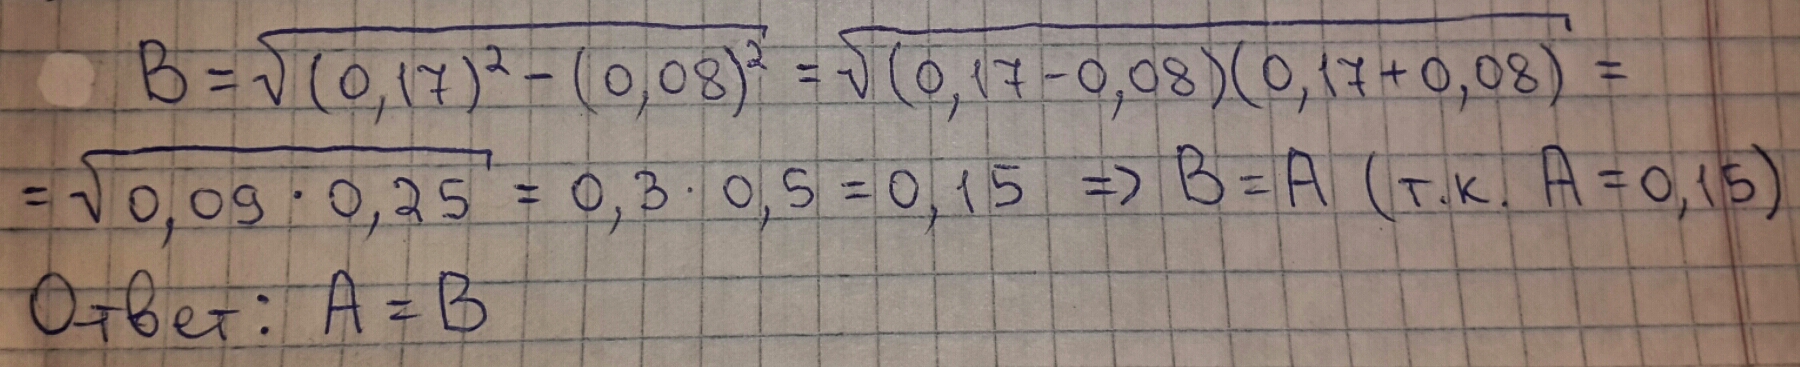 B = √((0,17)² - (0,08)²) = √((0,17 - 0,08)(0,17 + 0,08)) =
= √(0,09 · 0,25) = 0,3 · 0,5 = 0,15 => B = A (т.к. A = 0,15)
Ответ: A = B